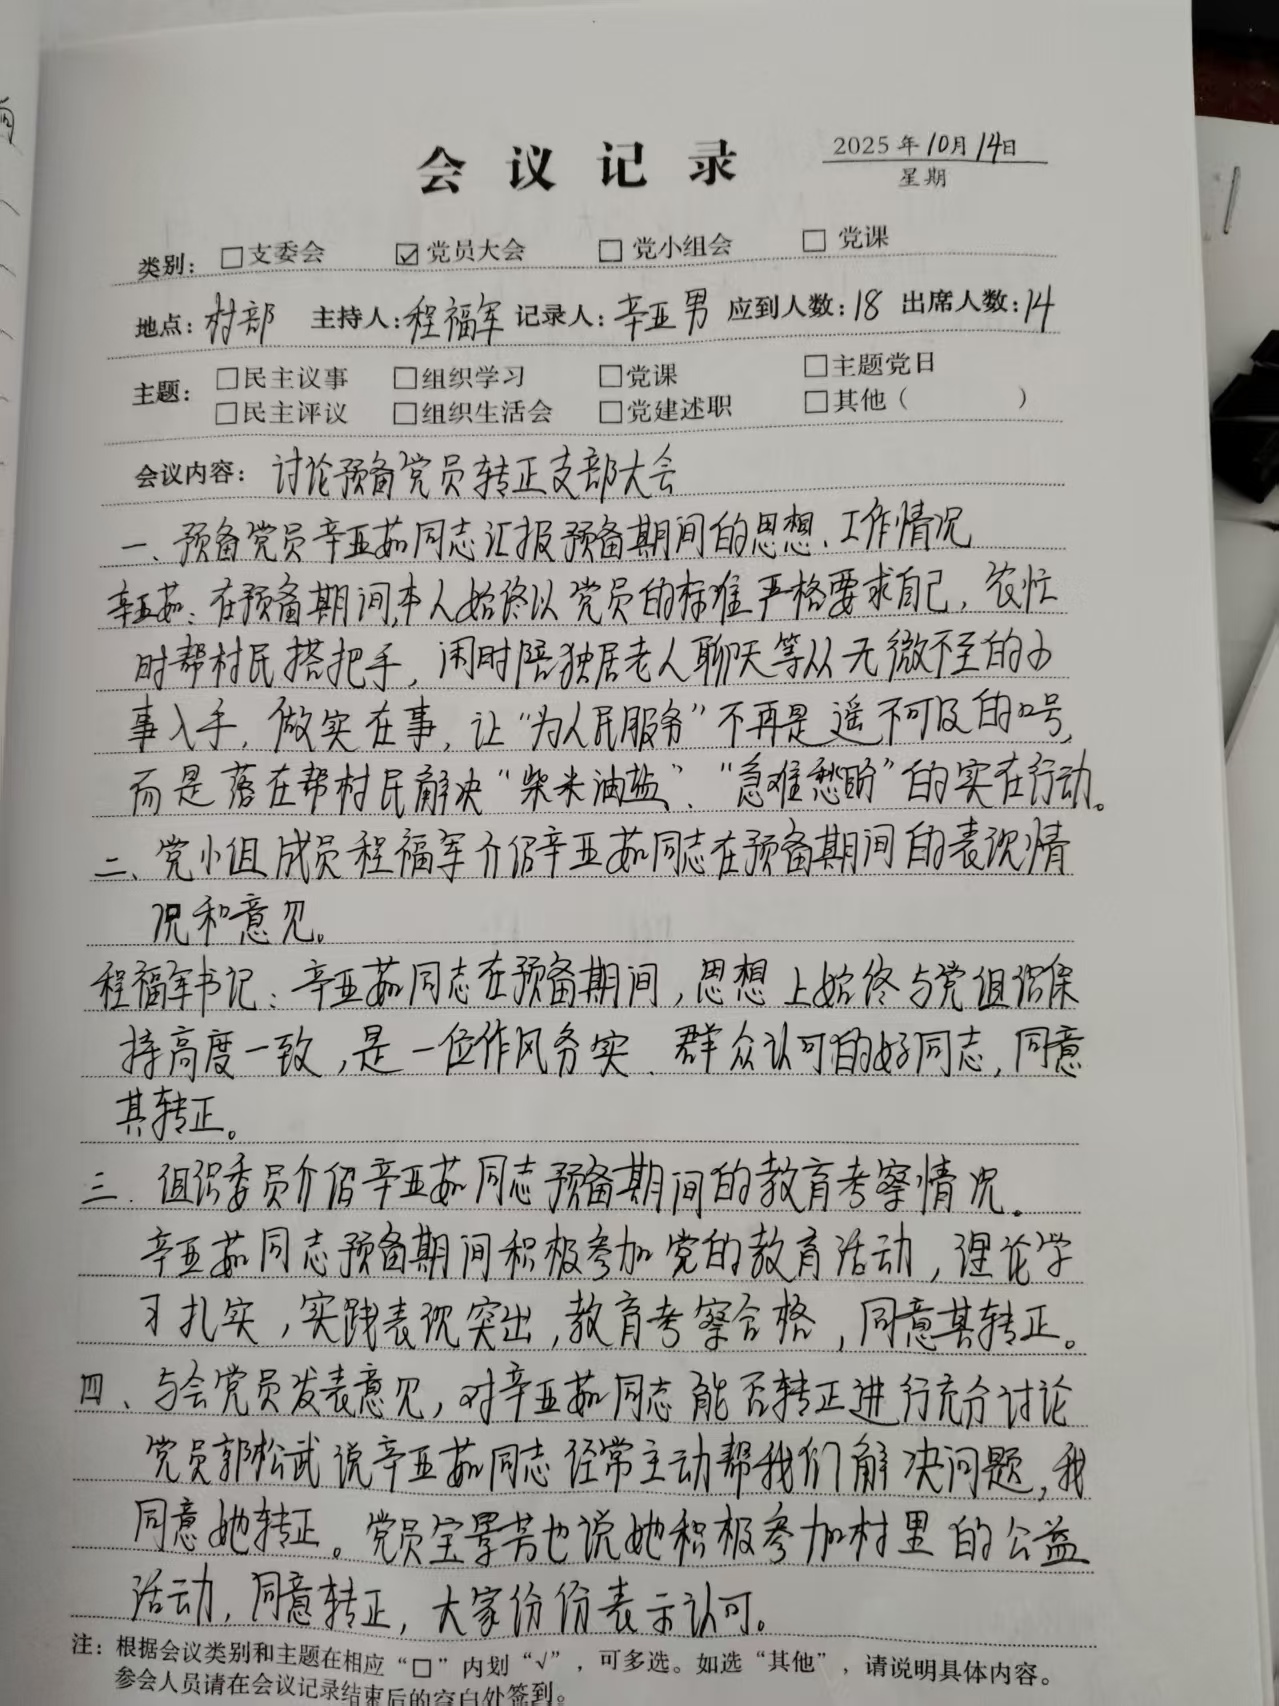 会议记录
2025年10月14日
星期
类别：□支委会 ☑党员大会 □党小组会 □党课
地点：村部 主持人：程福军 记录人：辛亚男 应到人数：18 出席人数：14
主题：□民主议事 □组织学习 □党课 □主题党日
□民主评议 □组织生活会 □党建述职 □其他（ ）
会议内容：讨论预备党员转正支部大会
一、预备党员辛亚茹同志汇报预备期间的思想、工作情况
辛亚茹：在预备期间，本人始终以党员的标准严格要求自己，农忙
时帮村民搭把手，闲时陪独居老人聊天等从无微不至的小
事入手，做实在事，让“为人民服务”不再是遥不可及的口号，
而是落在帮村民解决“柴米油盐”、“急难愁盼”的实在行动。
二、党小组成员程福军介绍辛亚茹同志在预备期间的表现情
况和意见。
程福军书记：辛亚茹同志在预备期间，思想上始终与党组织保
持高度一致，是一位作风务实、群众认可的好同志，同意
其转正。
三、组织委员介绍辛亚茹同志预备期间的教育考察情况。
辛亚茹同志预备期间积极参加党的教育活动，理论学
习扎实，实践表现突出，教育考察合格，同意其转正。
四、与会党员发表意见，对辛亚茹同志能否转正进行充分讨论
党员郭松武说辛亚茹同志经常主动帮我们解决问题，我
同意她转正。党员宝景芳也说她积极参加村里的公益
活动，同意转正，大家份份表示认可。
注：根据会议类别和主题在相应“□”内划“√”，可多选。如选“其他”，请说明具体内容。
参会人员请在会议记录结束后的空白处签到。